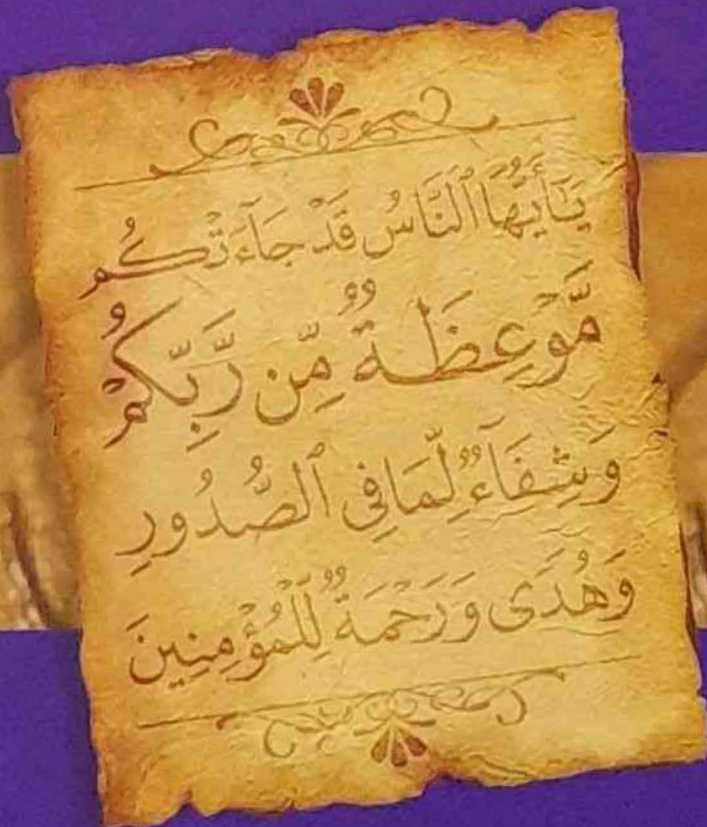 يَٰٓأَيُّهَا ٱلنَّاسُ قَدْ جَآءَتْكُم
مَّوْعِظَةٌ مِّن رَّبِّكُمْ
وَشِفَآءٌ لِّمَا فِى ٱلصُّدُورِ
وَهُدًى وَرَحْمَةٌ لِّلْمُؤْمِنِينَ